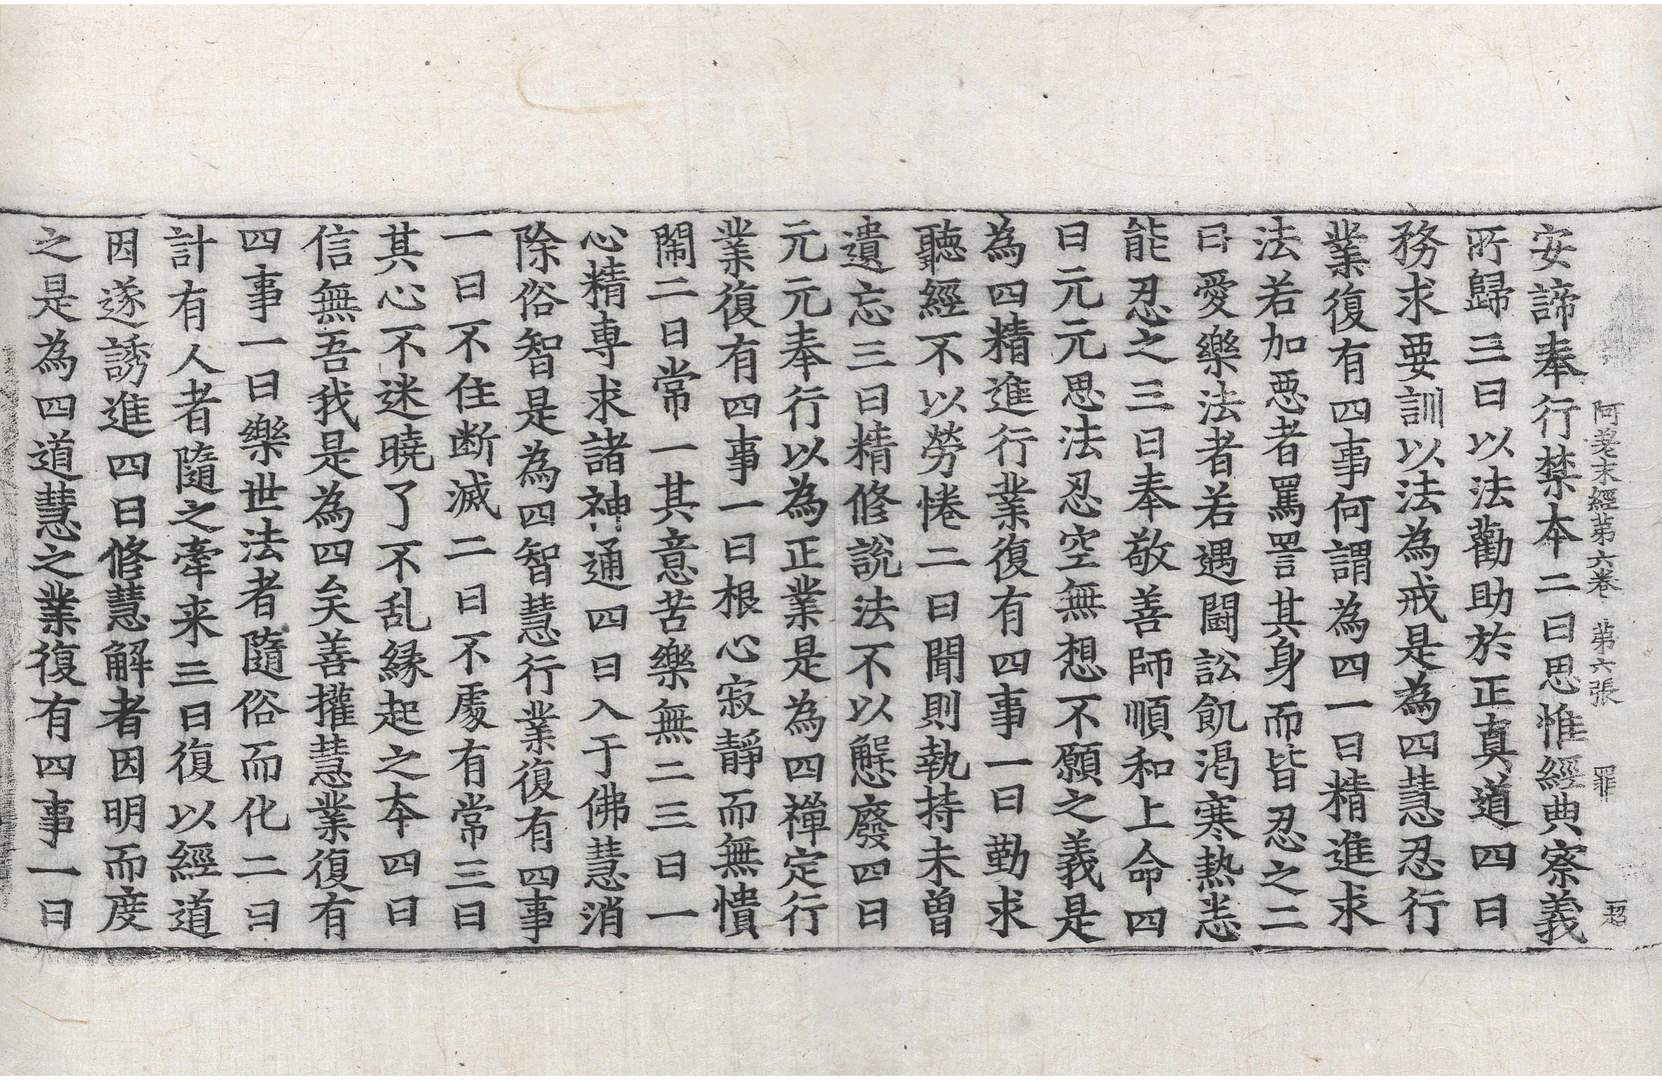 阿差末經第六卷 第六張 罪
安諦奉行禁本二曰思惟經典察義
所歸三曰以法勸助於正真道四曰
務求要訓以法為戒是為四慧忍行
業復有四事何謂為四一曰精進求
法若加惡者罵詈其身而皆忍之二
曰愛樂法者若遇鬪訟飢渴寒熱恚
能忍之三曰奉敬善師順和上命四
曰元元思法忍空無想不願之義是
為四精進行業復有四事一曰勤求
聽經不以勞惓二曰聞則執持未曽
遺忘三曰精修說法不以懈廢四曰
元元奉行以為正業是為四禪定行
業復有四事一曰根心寂靜而無憒
閙二曰常一其意苦樂無二三曰一
心精專求諸神通四曰入于佛慧消
除俗智是為四智慧行業復有四事
一曰不住断滅二曰不處有常三曰
其心不迷曉了不乱縁起之本四曰
信無吾我是為四矣善攉慧業復有
四事一曰樂世法者隨俗而化二曰
計有人者隨之牽来三曰復以經道
因遂誘進四曰修慧解者因明而度
之是為四道慧之業復有四事一曰